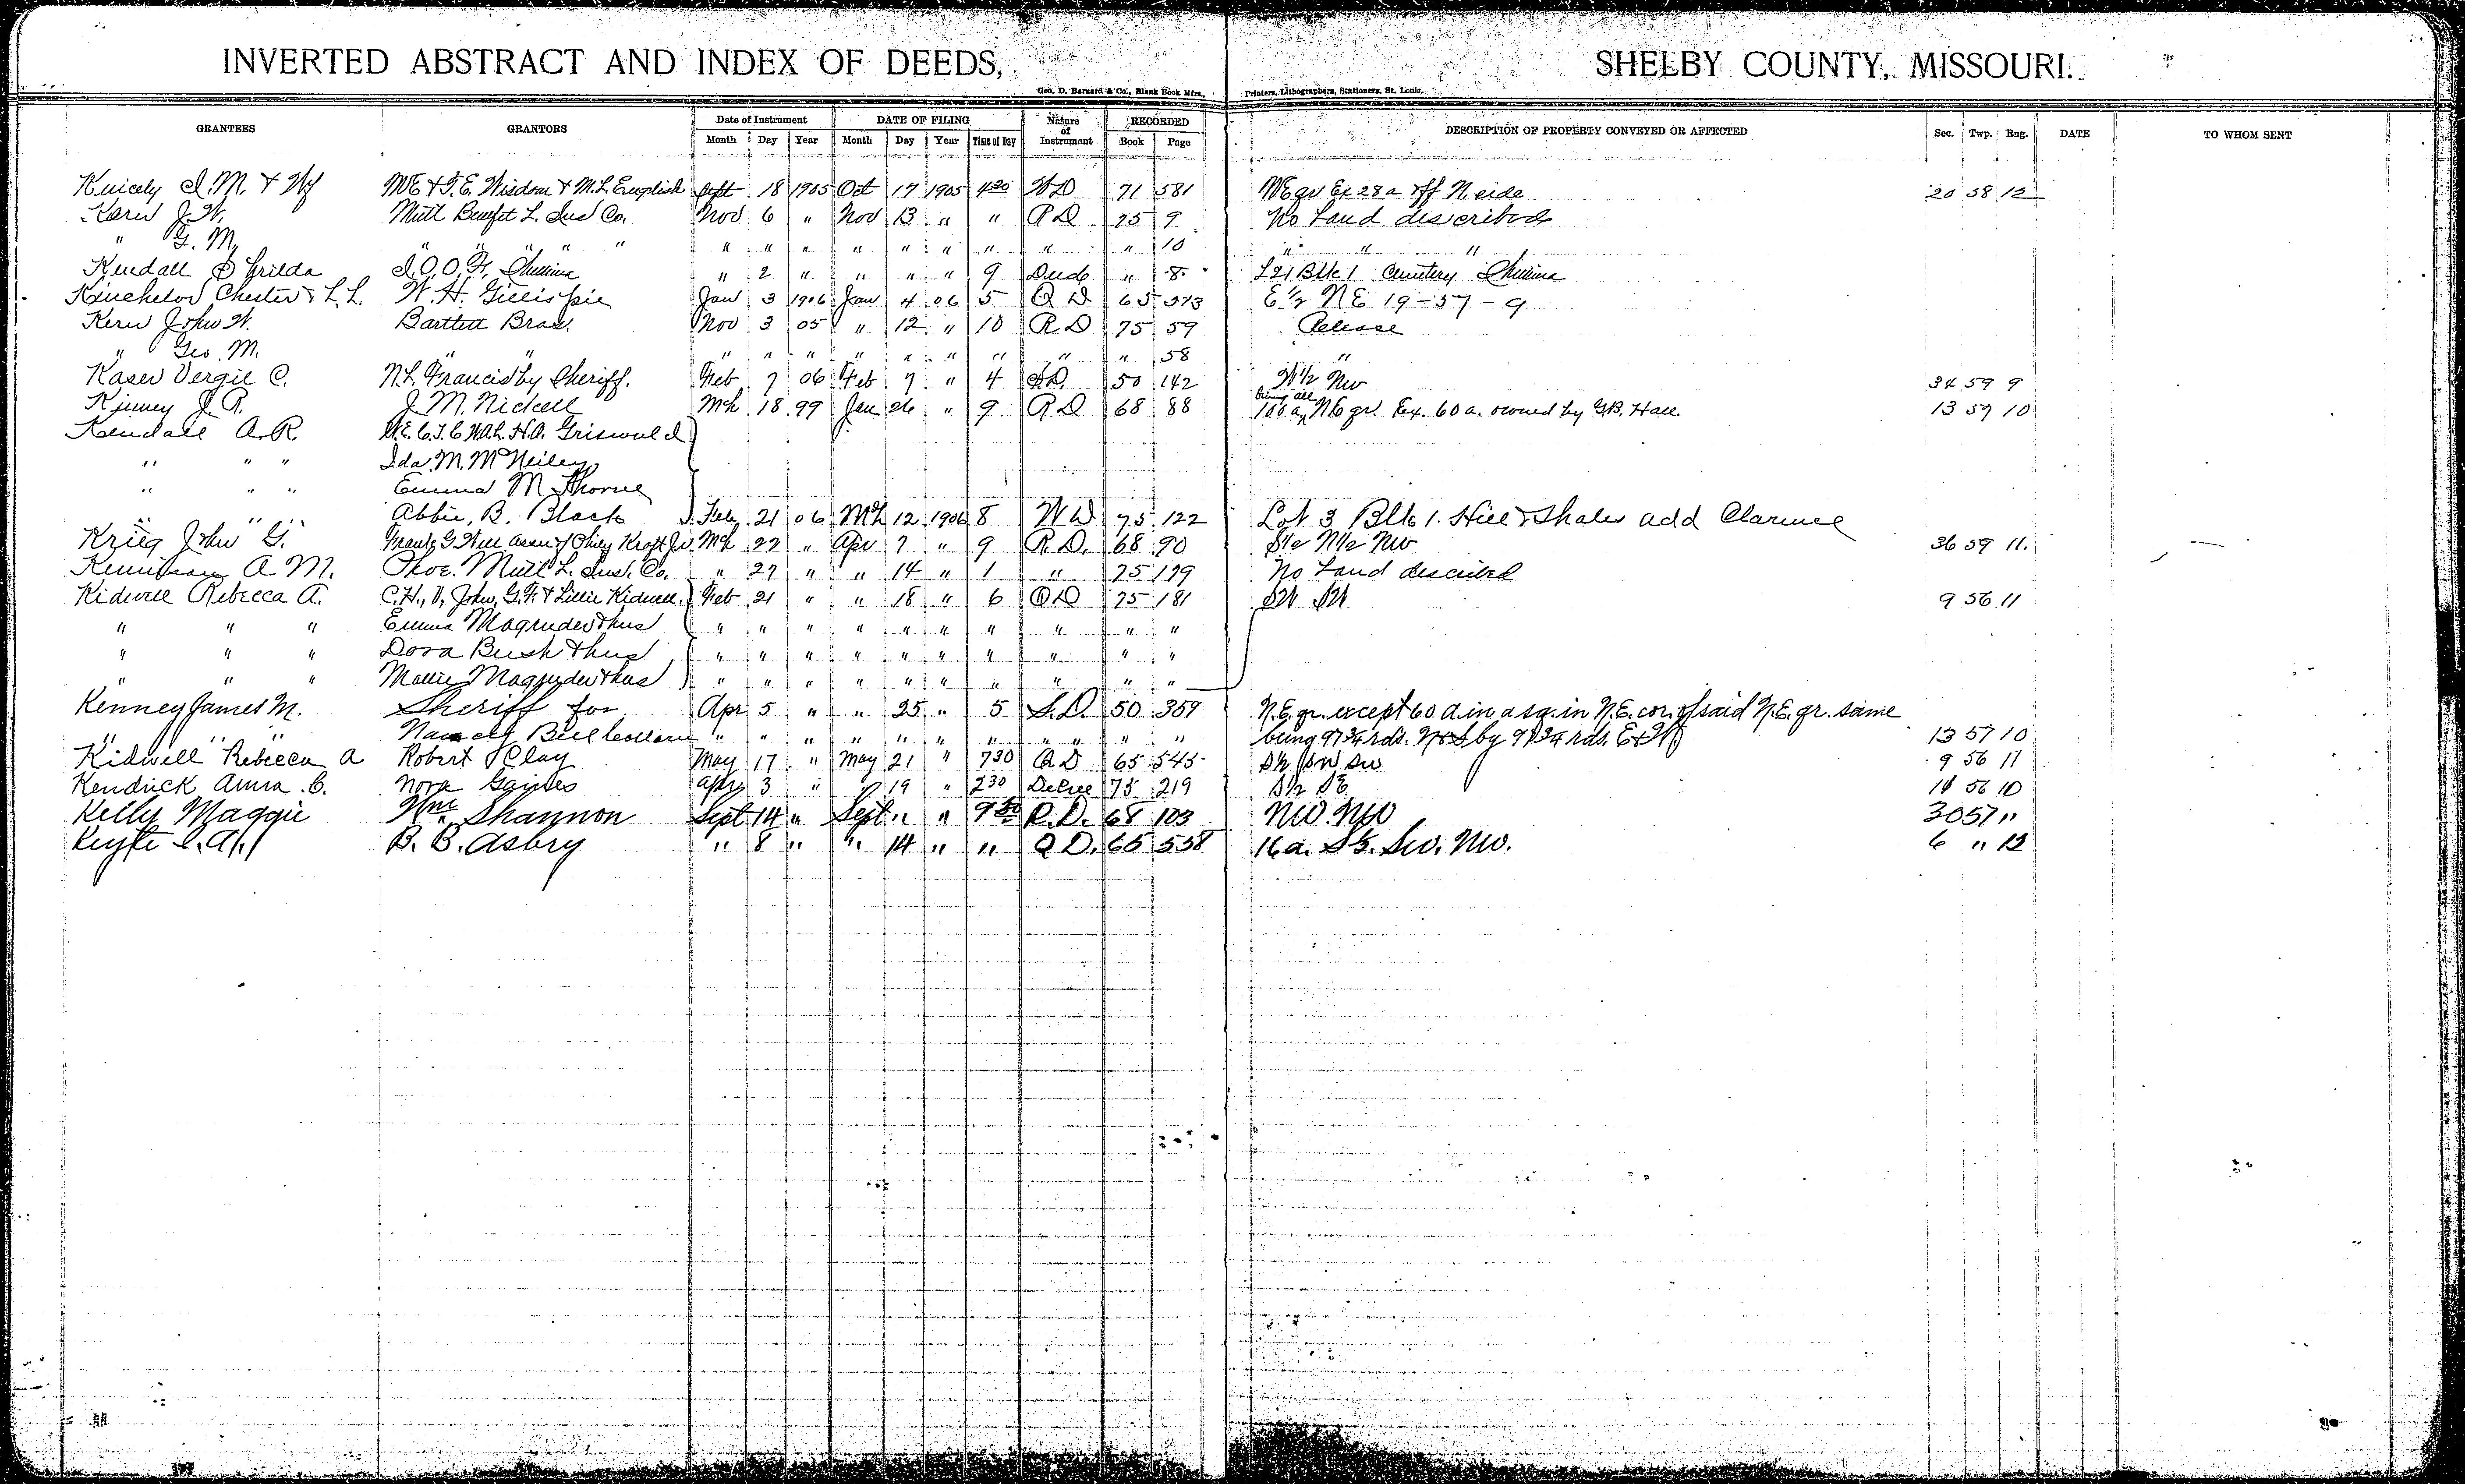 INVERTED ABSTRACT AND INDEX OF DEEDS, SHELBY COUNTY, MISSOURI.
Geo. D. Barnard & Co., Blank Book Mfrs., Printers, Lithographers, Stationers, St. Louis.
GRANTEES GRANTORS Date of Instrument DATE OF FILING Nature of Instrument RECORDED DESCRIPTION OF PROPERTY CONVEYED OR AFFECTED Sec. Twp. Rng. DATE TO WHOM SENT
Month Day Year Month Day Year Time of Day Book Page
Knicely I. M. & Wf & T. E. Wisdom & M. L. English Sept 18 1905 Oct 17 1905 4 30 W D 71 581 NE qr Ex 28 a off N side 20 58 12
Kern J. W. Mutl Benefit L. Ins Co. Nov 6 " Nov 13 " " R D 75 9 No Land described
" G. M. " " " " " " " " " " " " " " 10 " " "
Kendall I. O. O. F. " 2 " " " " 9 Deed " 8 L 21 Blk 1 Cemetery
Kincheloe Chester & L. L. W. H. Gillispie Jan 3 1906 Jan 4 06 5 Q D 65 573 E 1/2 NE 19-57-9
Kern John W. Bartlett Bros. Nov 3 05 " 12 " 10 R D 75 59 Release
" Geo. M. " " " " " " " " " " " 58 "
Kaser Vergie C. N. L. Francis by Sheriff. Feb 7 06 Feb 7 " 4 S D. 50 142 W 1/2 NW 34 59 9
Kinney J. R. J. M. Nickell Mch 18 99 Jan 26 " 9 R D 68 88 100 a, being all NE qr. Ex. 60 a. owned by G. B. Hall. 13 57 10
Kendall A. R. H. A. Griswold
" " " Ida. M. McNeiley
" " " Emma M Thorne
" " " Abbie. B. Black Feb 21 06 Mch 12 1906 8 W D 75 122 Lot 3 Blk 1. Hill & Shales add Clarence
Krieg John G. Mch 22 " Apr 7 " 9 R. D. 68 90 S 1/2 N 1/2 NW 36 59 11.
Kennison A M. Phoe. Mutl L. Ins. Co. " 27 " " 14 " 1 " 75 179 No Land described
Kidwell Rebecca A. C. H., V, John, G. F. & Lillie Kidwell. Feb 21 " " 18 " 6 Q D 75 181 SW SW 9 56 11
" " " Emma Magruder & hus " " " " " " " " " "
" " " Dora Bush & hus " " " " " " " " " "
" " " Mollie Magruder & hus " " " " " " " " " "
Kenney James M. Sheriff for Apr 5 " " 25 " 5 S. D. 50 359 N. E. qr. except 60 a. in a sq. in N. E. cor. of said N. E. qr. same
" " " Nancy " " " " " " " " " " " being 97 3/4 rds. N & S by 97 3/4 rds. E & W 13 57 10
Kidwell Rebecca A Robert Clay May 17 " May 21 " 7 30 Q D 65 545 SW SW 9 56 11
Kendrick Anna C. Nora Gaines Apr 3 " " 19 " 2 30 Decree 75 219 S 1/2 SE 56 10
Kelly Maggie Wm. Shannon Sept 14 " Sept " " 9 30 R. D. 68 103 NW. NW 30 57 "
Keyte I. A. B. B. Asbry " 8 " " 14 " " Q D. 65 558 16 a. SW. NW. 6 " 12